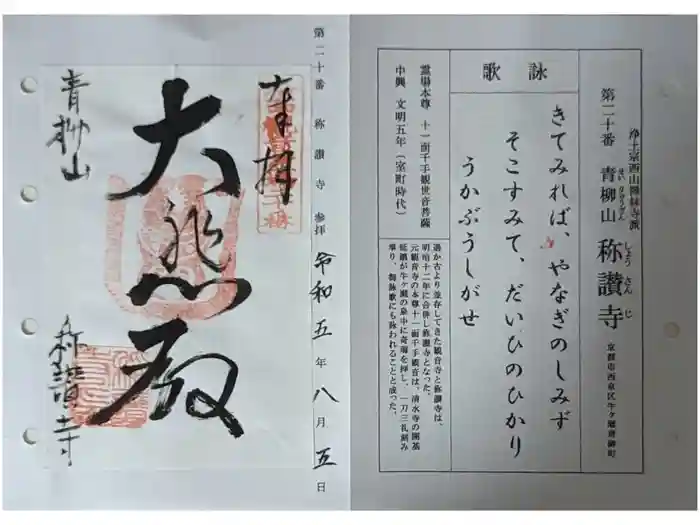 浄土宗西山禅林寺派
第二十番 青柳山 称讃寺
せいりゅうざん
しょうさんじ
京都市西京区牛ヶ瀬青柳町
詠歌
きてみれば、やなぎのしみず
そこすみて、だいひのひかり
うかぶうしがせ
霊場本尊 十一面千手観世音菩薩
中興 文明五年(室町時代)
遥か古より並存してきた観音寺と称讃寺は、
明治十二年に合併し称讃寺となった。
元観音寺の本尊十一面千手観音は、清水寺の開基
延鎮が牛ヶ瀬の泉中に奇瑞を拝し、一刀三礼刻み
奉り、御詠歌にも詠われることと成った。
第二十番 称讃寺 参拝 令和五年八月五日
奉拝
大悲殿
青柳山
称讃寺